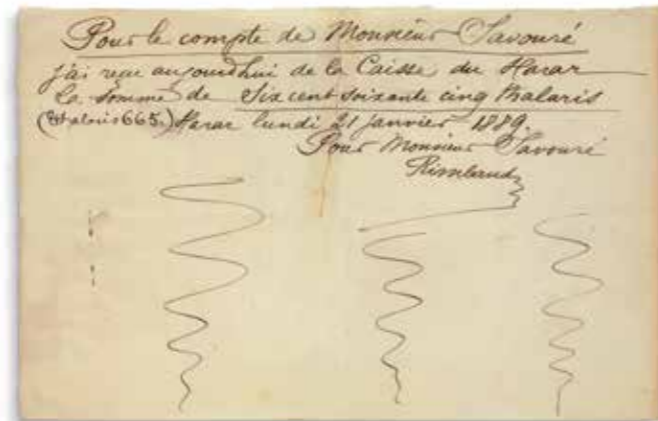 Pour le compte de Monsieur Savouré
j'ai reçu aujourdhui de la Caisse du Harar
la somme de Six cent soixante cinq thalaris
(thalaris 665.) Harar lundi 21 janvier 1889.
Pour Monsieur Savouré
Rimbaud